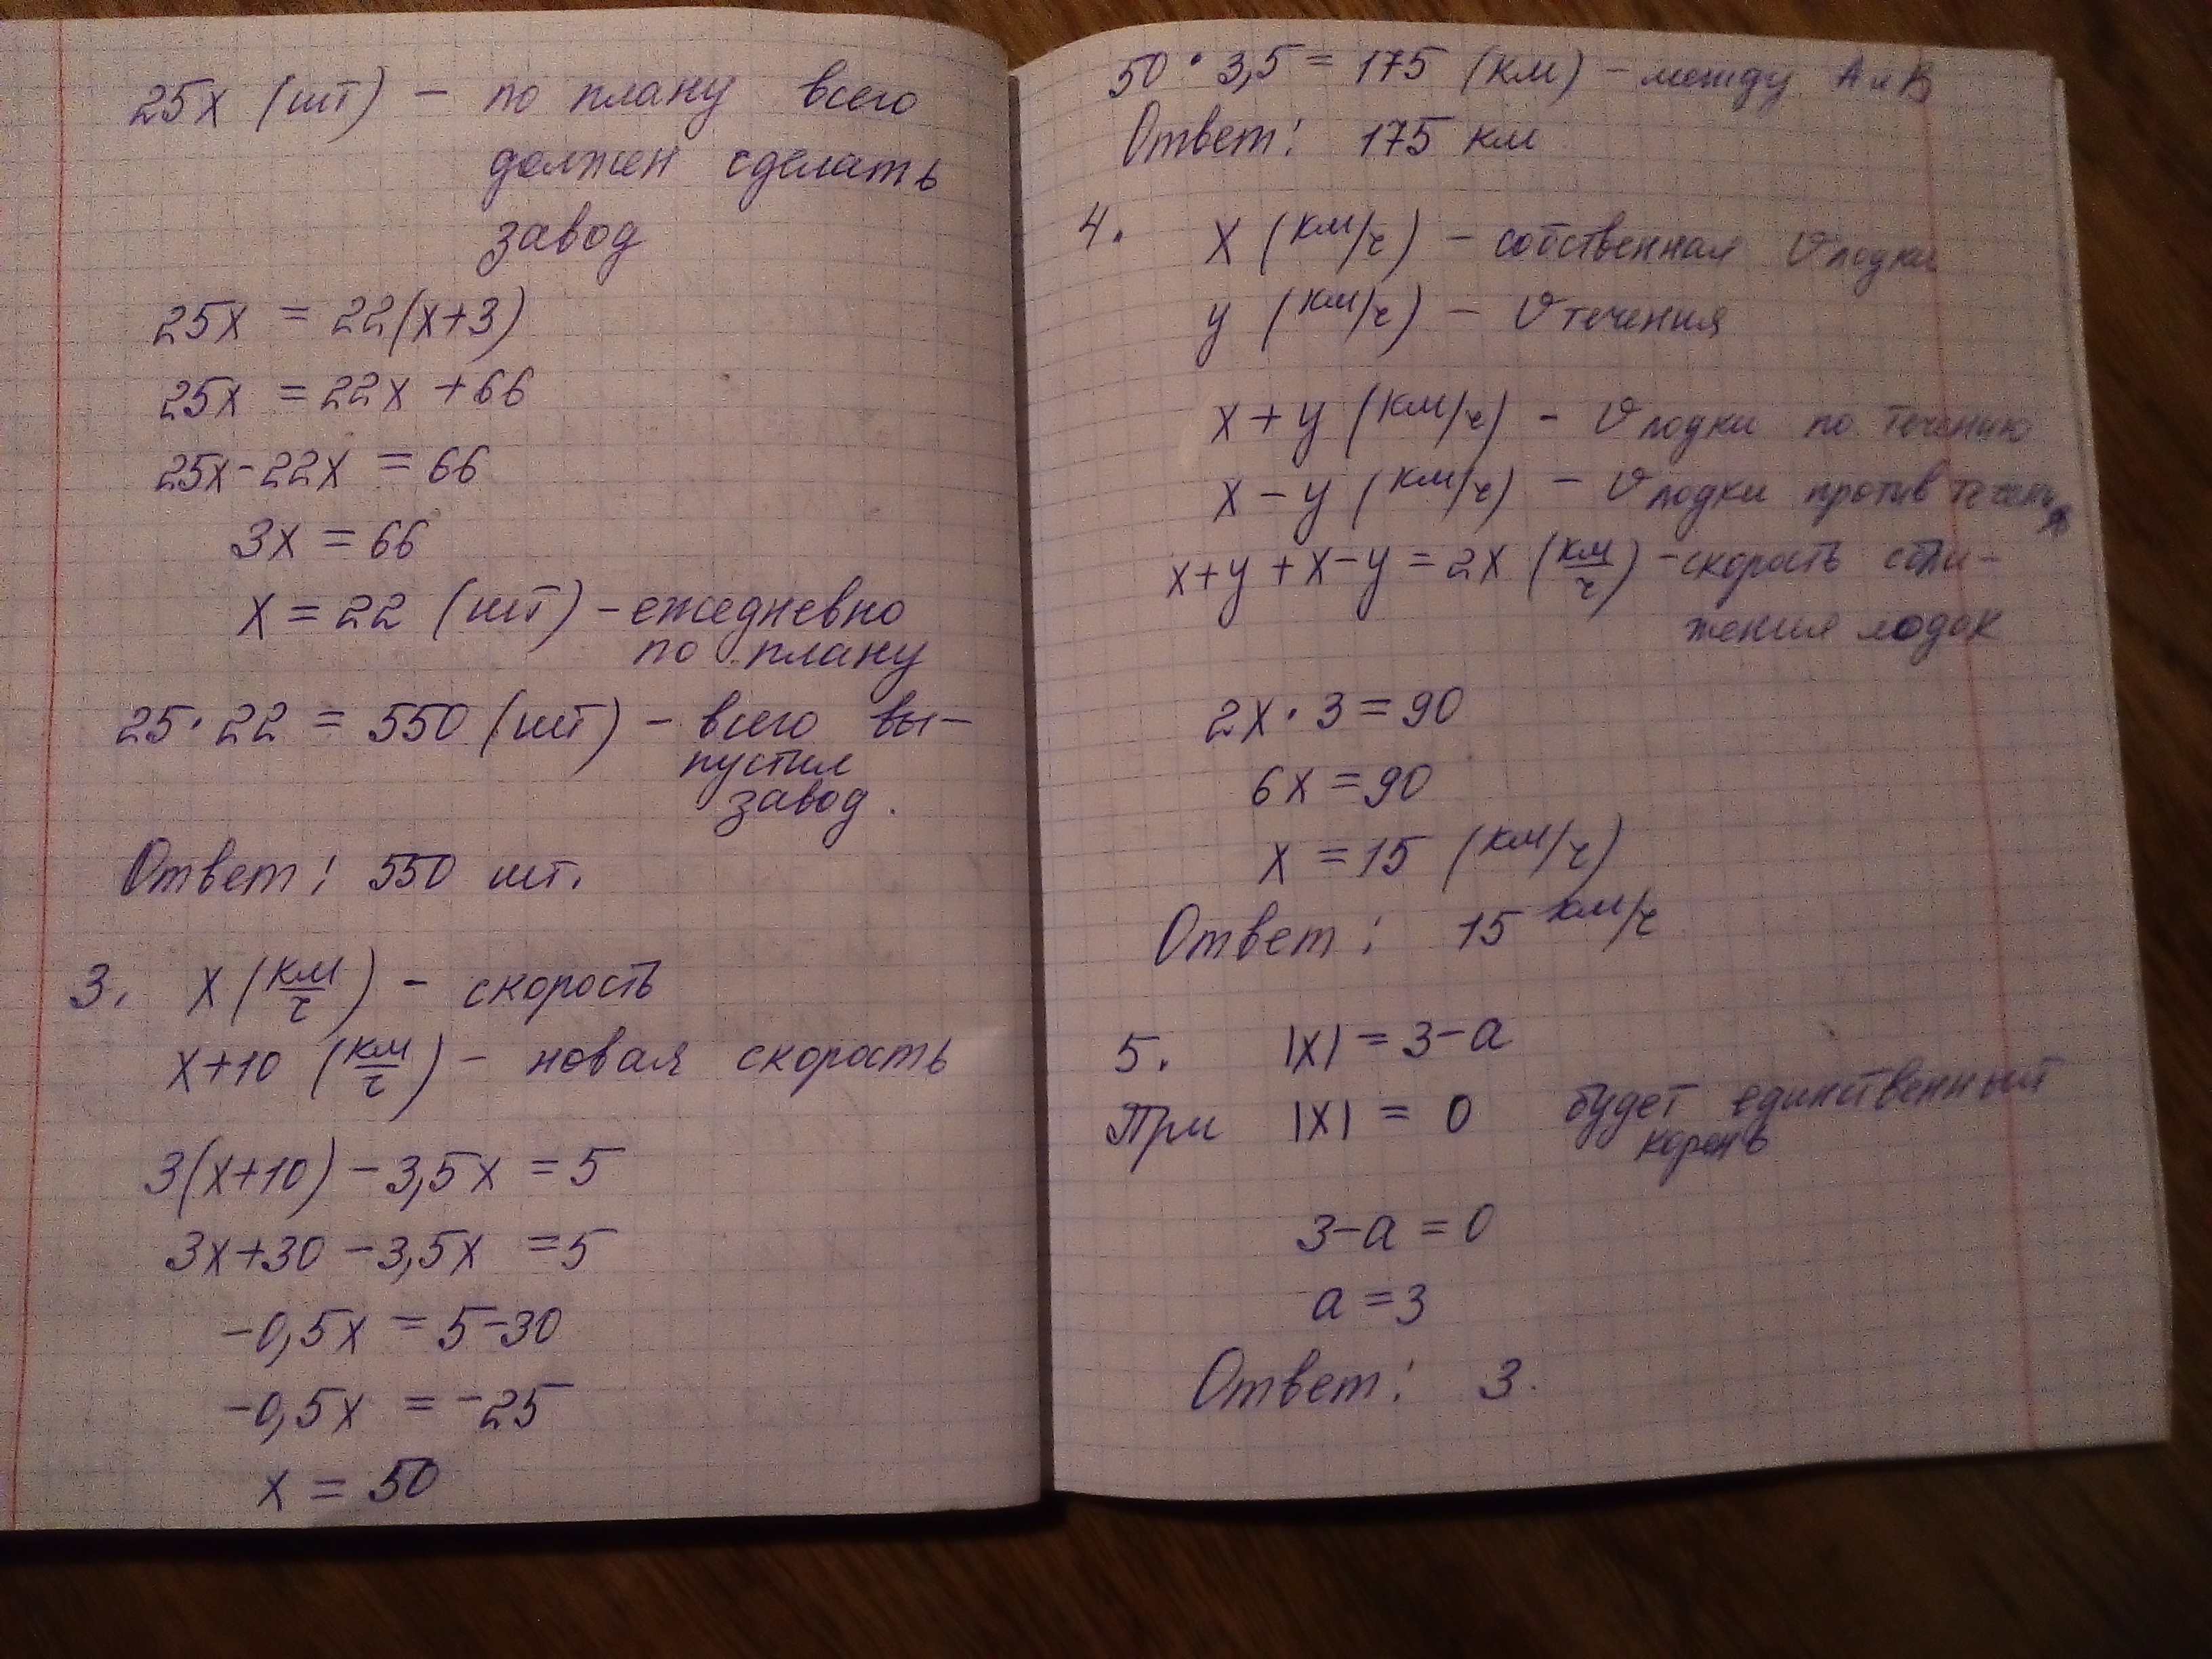 25x (шт) – по плану всего
должен сделать
завод
25x = 22(x+3)
25x = 22x + 66
25x - 22x = 66
3x = 66
x = 22 (шт) – ежедневно
по плану
25 · 22 = 550 (шт) – всего вы-
пустил
завод.
Ответ: 550 шт.
3. x (км/ч) – скорость
x+10 (км/ч) – новая скорость
3(x+10) – 3,5x = 5
3x+30 – 3,5x = 5
-0,5x = 5-30
-0,5x = -25
x = 50
50 · 3,5 = 175 (км) – между A и B
Ответ: 175 км
4. x (км/ч) – собственная v лодки
y (км/ч) – v течения
x + y (км/ч) – v лодки по течению
x – y (км/ч) – v лодки против
x+y + x-y = 2x (км/ч) – скорость сбли-
жения лодок
2x · 3 = 90
6x = 90
x = 15 (км/ч)
Ответ: 15 км/ч
5. |x| = 3-a
При |x| = 0 будет единственный
корень
3-a = 0
a = 3
Ответ: 3.